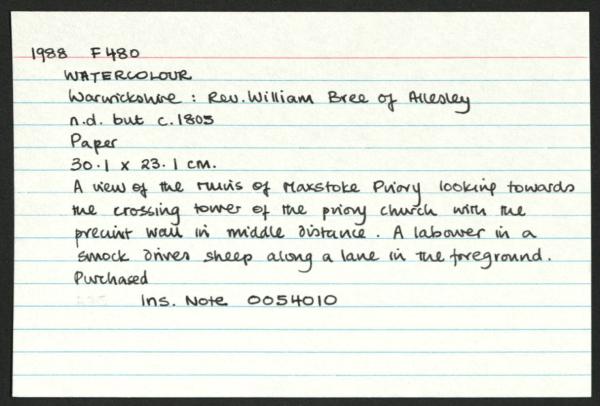 1988 F480
WATERCOLOUR
Warwickshire : Rev. William Bree of Allesley
n.d. but c.1805
Paper
30.1 x 23.1 cm.
A view of the ruins of Maxstoke Priory looking towards
the crossing tower of the priory church with the
precinct wall in middle distance. A labourer in a
smock drives sheep along a lane in the foreground.
Purchased
Ins. Note 0054010